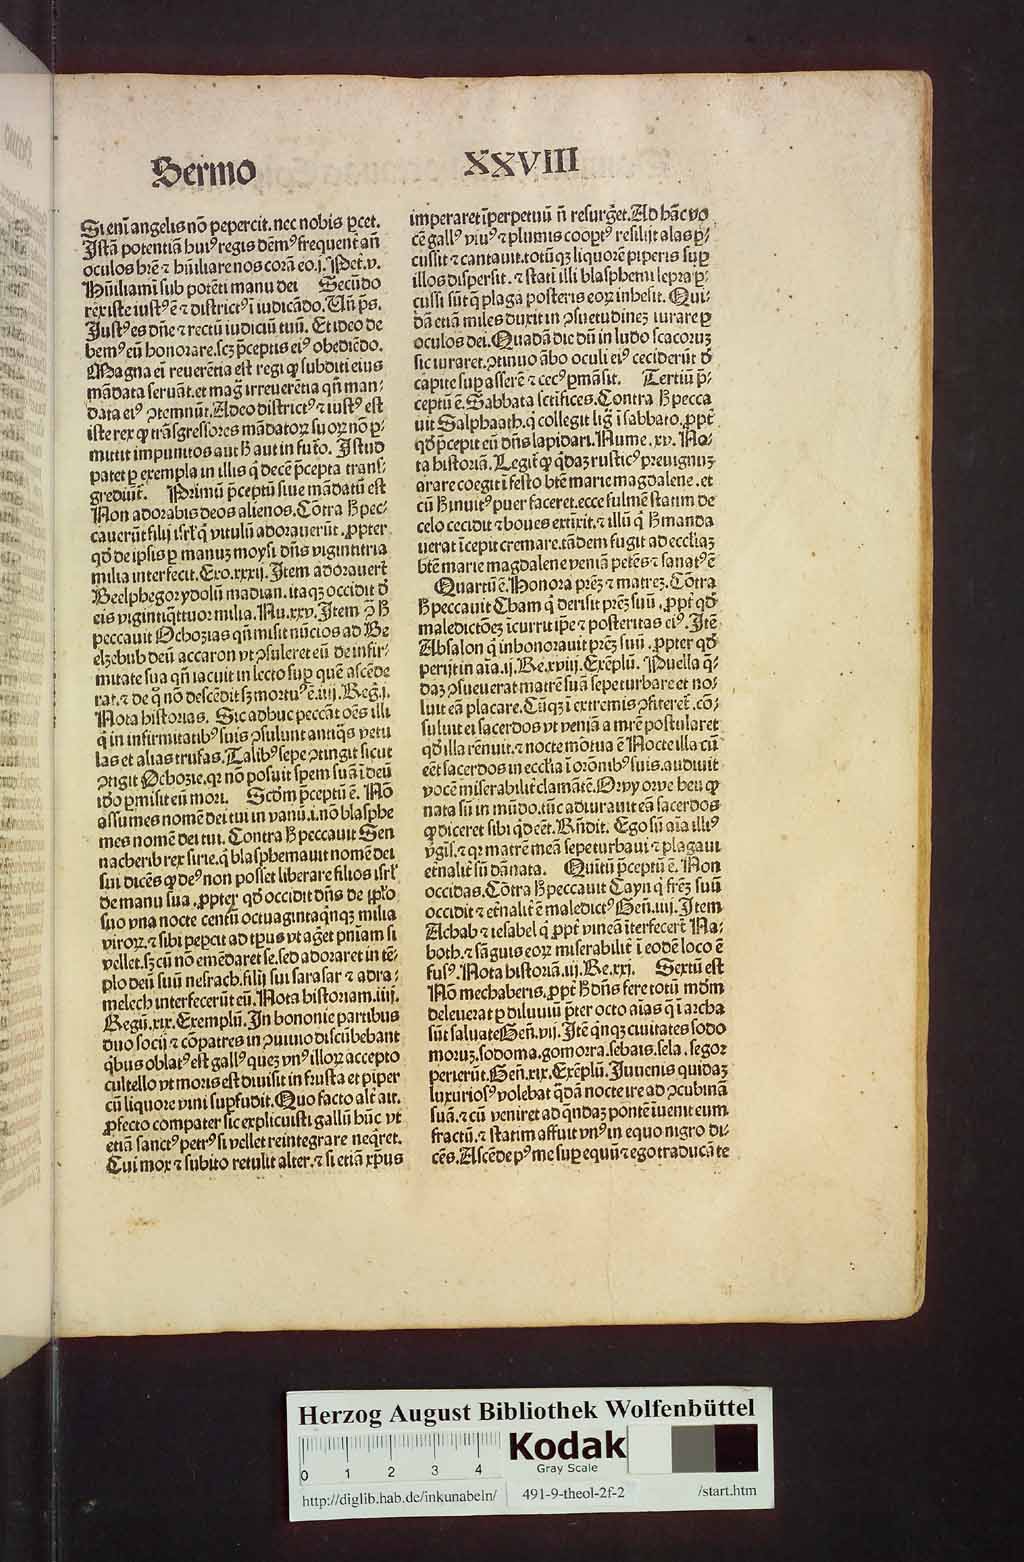 Sermo XXVIII
Si enī angelis nō pepercit. nec nobis ꝑcet.
Istā potentiā huiꝰ regis dēmꝰ frequent̄ an̄
oculos hr̄e ⁊ hūiliare nos corā eo. j. Pet. v.
Hūiliamī sub potēti manu dei Secūdo
rex iste iustꝰ ē ⁊ districtꝰ ī iudicādo. Vn̄ ps̄.
Justꝰ es dn̄e ⁊ rectū iudiciū tuū. Et ideo de
bemꝰ eū honorare. scꝫ p̄ceptis eiꝰ obediēdo.
Magna eī reuerētia est regi ꝙ subditi eius
mādata seruāt. et maḡ irreuerētia qn̄ man⸗
data eiꝰ ꝯtemnūt. Adeo districtꝰ ⁊ iustꝰ est
iste rex ꝙ trāsgressores mādatoꝝ suoꝝ nō ꝑ⸗
mittit impunitos aut h̄ aut in fut̄o. Istud
patet ꝑ exempla in illis q̄ decē p̄cepta trans⸗
grediūt̄. Primū p̄ceptū siue mādatū est
Non adorabis deos alienos. Cōtra h̄ pec⸗
cauerūt filij isrl̄ q̄ vitulū adorauerūt. ꝓpter
qd̄ de ipsis ꝑ manuꝫ moysi dn̄s viginti tria
milia interfecit. Exo. xxxij. Item adorauer̄t
Beelphegor ydolū madian. itaqꝫ occidit d̄
eis vigintiq̄ttuor milia. Nu. xxv. Item ꝯ̄ h̄
peccauit Ochozias qn̄ misit nūcios ad Be
elzebub deū accaron vt ꝯsuleret eū de infir⸗
mitate sua qn̄ iacuit in lecto suꝑ quē ascēde
rat. ⁊ de q̄ nō descēdit sꝫ mortuꝰ ē. iiij. Reḡ. j.
Nota historias. Sic adhuc peccāt oēs illi
q̄ in infirmitatibꝰ suis ꝯsulunt antiq̄s vetu
las et alias trufas. Talibꝰ sepe ꝯtingit sicut
ꝯtigit Ochozie. qꝛ nō posuit spem suā ī deū
iō ꝑmisit eū mori. Scd̄m p̄ceptū ē. Nō
assumes nomē dei tui in vanū. i. nō blasphe
mes nomē dei tui. Contra h̄ peccauit Sen
nacherib rex sirie. q̄ blasphemauit nomē dei
sui dicēs ꝙ deꝰ non posset liberare filios isrl̄
de manu sua. ꝓpter qd̄ occidit dn̄s de ipl̄o
suo vna nocte centū octuagintaq̄nqꝫ milia
viroꝝ. ⁊ sibi pepcit ad tp̄us vt aḡet pn̄iam si
vellet. sꝫ cū nō emēdaret se. sed adoraret in tē⸗
plo deū suū nesrach. filij sui sarasar ⁊ adra⸗
melech interfecerūt eū. Nota historiam. iiij.
Regū. xix. Exemplū. In bononie partibus
duo socij ⁊ cōpatres in ꝯuiuio discūbebant
q̄bus oblatꝰ est gallꝰ quez vnꝰ illoꝝ accepto
cultello vt moris est diuisit in frusta et piper
cū liquore vini suꝑfudit. Quo facto alt̄ ait.
ꝓfecto compater sic explicuisti gallū hūc vt
etiā sanctꝰ petrꝰ si vellet reintegrare neq̄ret.
Cui mox ⁊ subito retulit alter. ⁊ si etiā xp̄us
imperaret īperpetuū n̄ resurḡet. Ad hāc vo
cē gallꝰ viuꝰ ⁊ plumis coop̄tꝰ resilijt alas ꝑ⸗
cussit ⁊ cantauit. totūqꝫ liquorē piperis suꝑ
illos dispersit. ⁊ statī illi blasphemi lepra ꝑ⸗
cussi sūt q̄ plaga posteris eoꝝ inhesit. Qui⸗
dā etiā miles duxit in ꝯsuetudinez iurare ꝑ
oculos dei. Quadā die dū in ludo scacoruꝫ
sic iuraret. ꝯtinuo ābo oculi eiꝰ ceciderūt d̄
capite suꝑ asserē ⁊ cecꝰ ꝑmāsit. Tertiū p̄⸗
ceptū ē. Sabbata sctifices. Contra h̄ pecca
uit Salphaath. q̄ collegit liḡ ī sabbato. ꝓpt̄
qd̄ p̄cepit eū dn̄s lapidari. Nume. xv. No⸗
ta historiā. Legit̄ ꝙ q̄daꝫ rusticꝰ preuignuꝫ
arare coegit ī festo bt̄e marie magdalene. et
cū h̄ inuitꝰ puer faceret. ecce fulmē statim de
celo cecidit ⁊ boues extīxit. ⁊ illū q̄ h̄ manda
uerat īcepit cremare. tādem fugit ad eccl̄iaꝫ
bt̄e marie magdalene veniā petēs ⁊ sanatꝰ ē
Quartū ē. Honora prēꝫ ⁊ matreꝫ. Cōtra
h̄ peccauit Cham q̄ derisit prēꝫ suū. ꝓpt̄ qd̄
maledictōeꝫ īcurrit ip̄e ⁊ posteritas eiꝰ. Itē
Absalon q̄ inhonorauit prēꝫ suū. ꝓpter qd̄
perijt in aīa. ij. Re. xviij. Exēplū. Puella q̄⸗
daꝫ ꝯsueuerat matrē suā sepe turbare et no⸗
luit eā placare. Cūqꝫ ī extremis ꝯfiteret̄. cō⸗
suluit ei sacerdos vt veniā a mr̄e postularet
qd̄ illa rēnuit. ⁊ nocte mōtua ē Nocte illa cū
eēt sacerdos in eccl̄ia ī orōnibꝰ suis. audiuit
vocē miserabilit̄ clamātē. Orvy orve heu ꝙ
nata sū in mūdo. tūc adiurauit eā sacerdos
ꝙ diceret sibi qd̄ eēt. Rn̄dit. Ego sū aīa illiꝰ
v̄gis. ⁊ qꝛ matrē meā sepe turbaui ⁊ plagaui
et̄nalit̄ sū dānata. Quītū p̄ceptū ē. Non
occidas. Cōtra h̄ peccauit Cayn q̄ frēꝫ suū
occidit ⁊ et̄nalit̄ ē maledictꝰ Gen̄. iiij. Item
Achab ⁊ iesabel q̄ ꝓpt̄ vineā īterfecer̄t Na⸗
both. ⁊ sāguis eoꝝ miserabilit̄ ī eodē loco ē
fusꝰ. Nota historiā. iij. Re. xxj. Sextū est
Nō mechaberis. ꝓpt̄ h̄ dn̄s fere totū mōm
deleuerat ꝑ diluuiū p̄ter octo aīas q̄ ī archa
sūt saluate Gen̄. vij. Itē q̄nqꝫ ciuitates sodo
moruꝫ. sodoma. gomorra. sebais. sela. segor
perierūt. Gen̄. xix. Exēplū. Iuuenis quidaꝫ
luxuriosꝰ volebat q̄dā nocte ire ad ꝯcubinā
suā. ⁊ cū veniret ad q̄ndaꝫ pontē īuenit eum
fractū. ⁊ statim affuit vnꝰ in equo nigro di⸗
cēs. Ascēde pꝰ me suꝑ equū ⁊ ego traducā te
Herzog August Bibliothek Wolfenbüttel
0 1 2 3 4
Kodak
Gray Scale
http://diglib.hab.de/inkunabeln/ 491-9-theol-2f-2 /start.htm